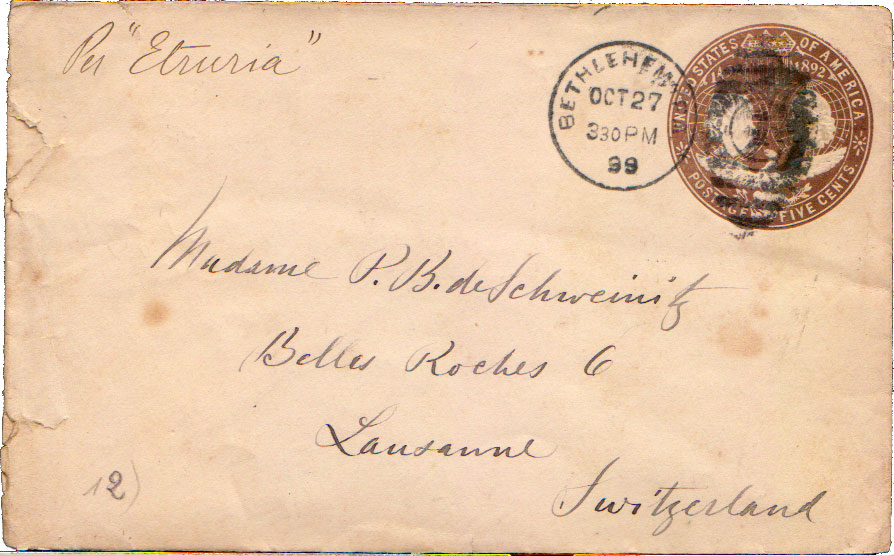 Per "Etruria"
BETHLEHEM
OCT 27
330 PM
99
UNITED STATES OF AMERICA
1892
POSTAGE FIVE CENTS
Madame P. B. de Schweinitz
Belles Roches 6
Lausanne
Switzerland
12)